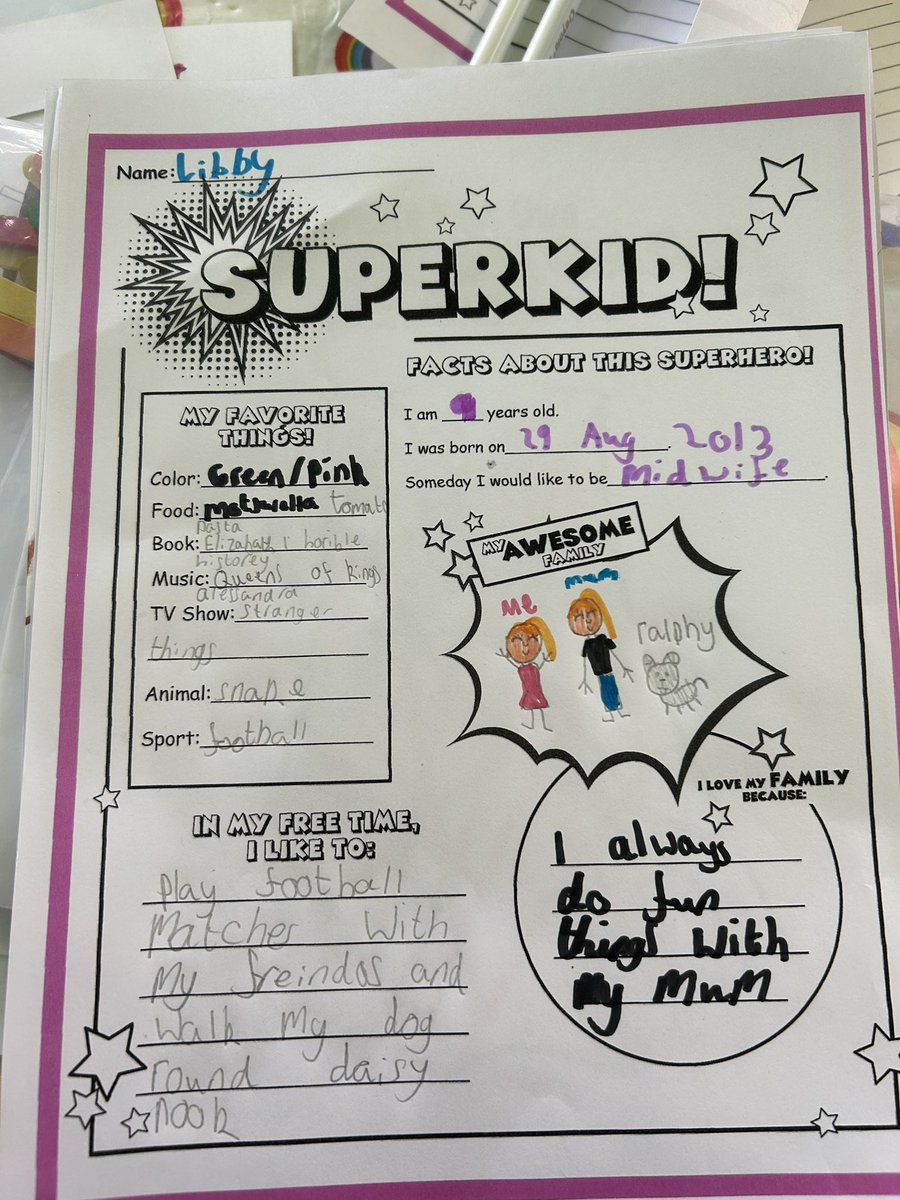 Name: Libby
SUPERKID!
FACTS ABOUT THIS SUPERHERO!
I am 9 years old.
I was born on 29 Aug. 2013
Someday I would like to be Midwife.
MY FAVORITE
THINGS!
Color: Green/Pink
Food: tomato
pasta
Book: Elizabeth 1 horrible
historey
Music: Queens of Kings
alessandra
TV Show: stranger
things
Animal: snake
Sport: football
MY AWESOME
FAMILY
Me
mum
ralphy
I LOVE MY FAMILY
BECAUSE:
I always
do fun
things with
my MuM
IN MY FREE TIME,
I LIKE TO:
Play football
Matcher With
My freindos and
walk My dog
round daisy
nook